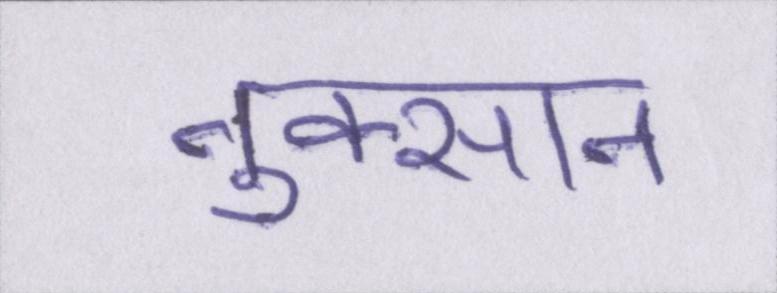 नुक्सान